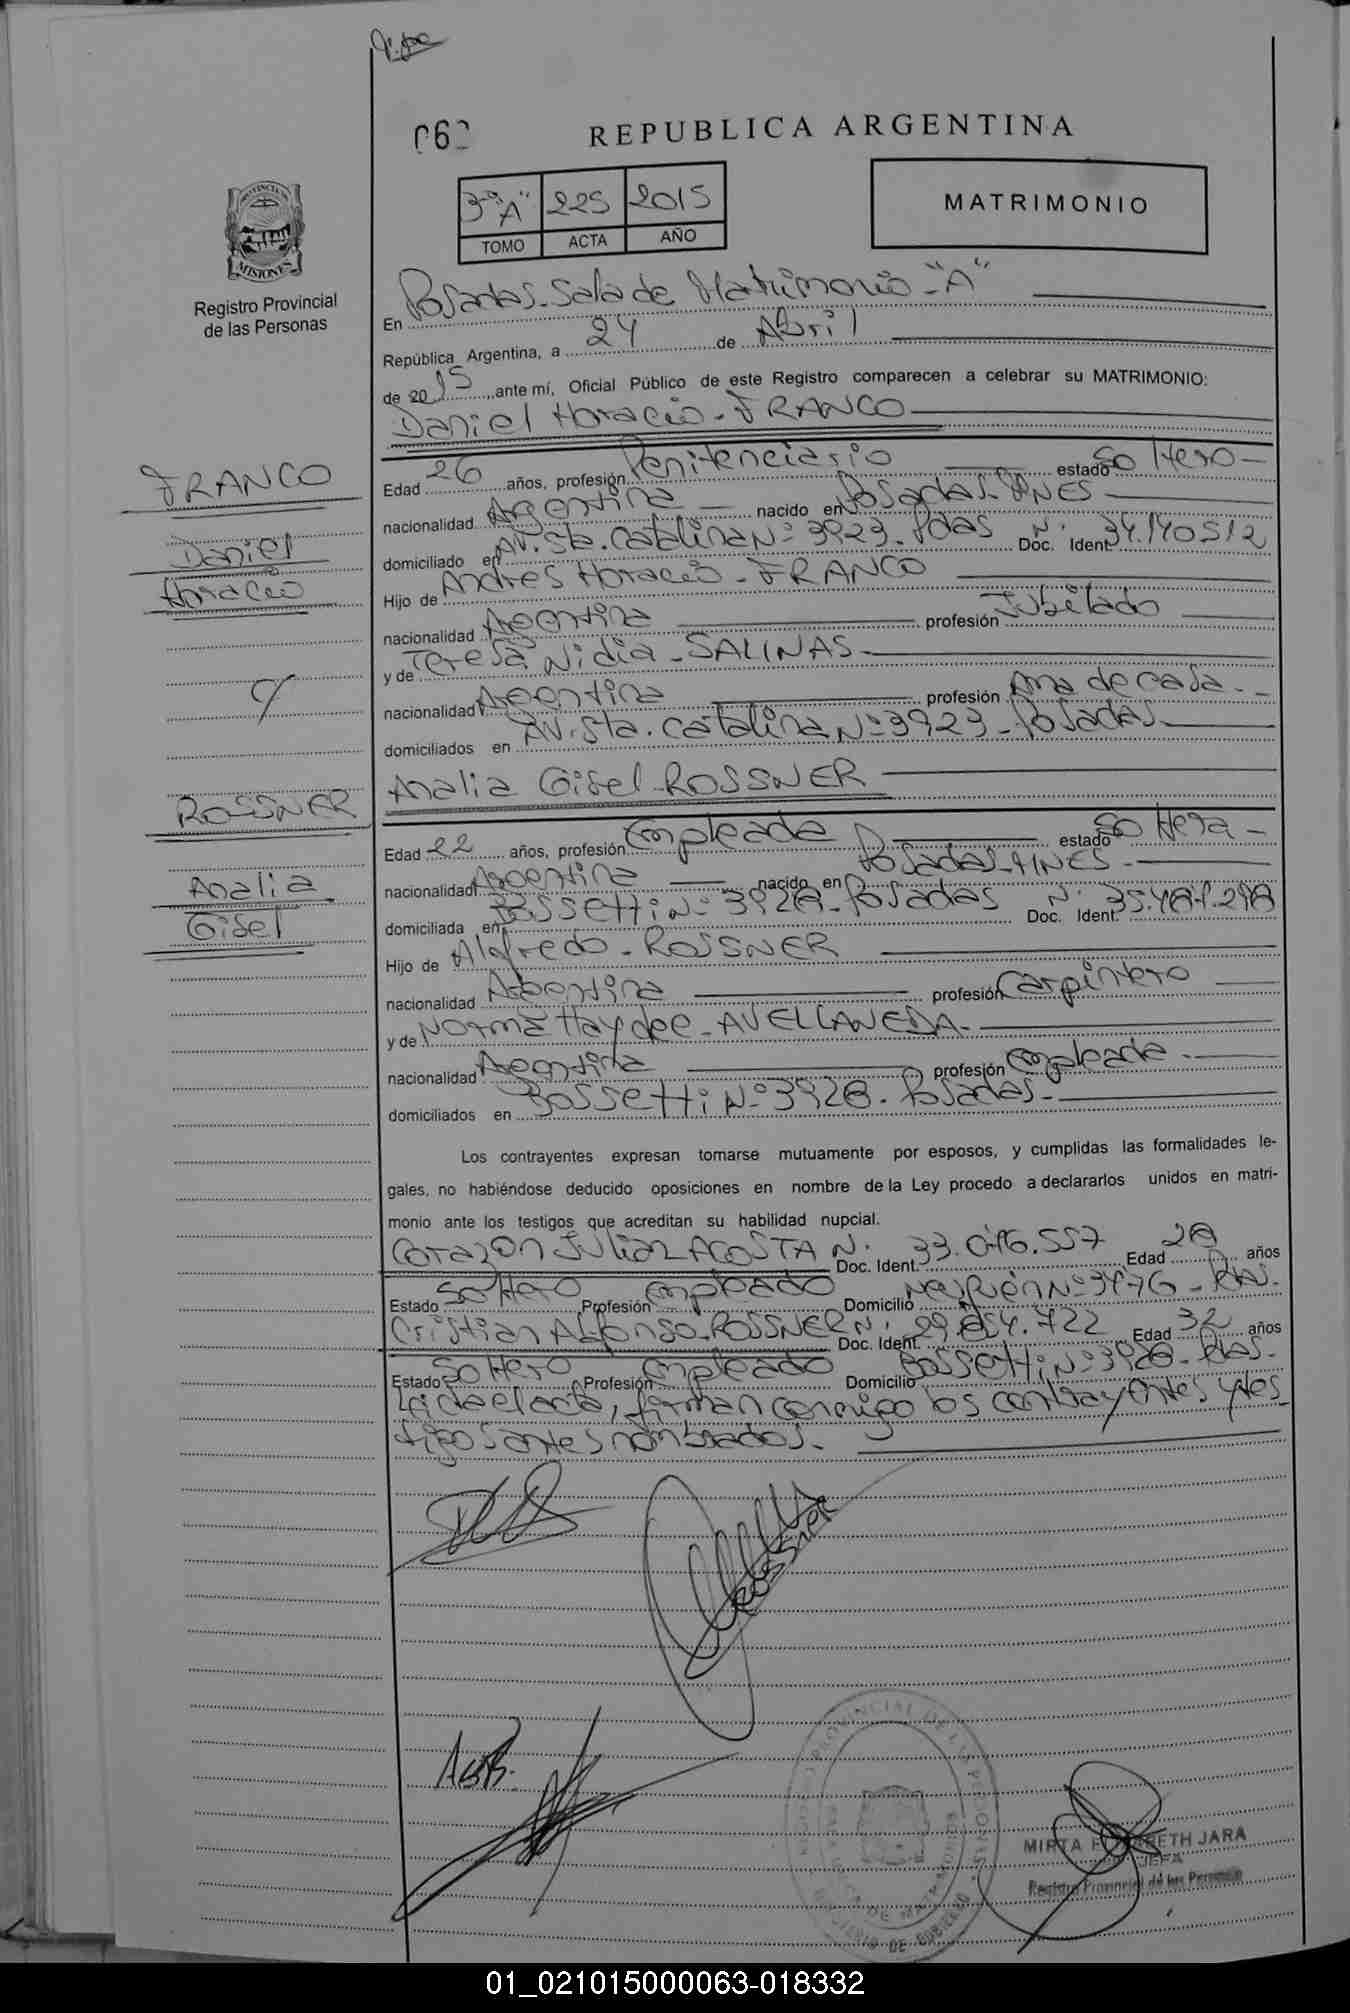 REPUBLICA ARGENTINA
3º "A" 225 2015
TOMO ACTA AÑO
MATRIMONIO
PROVINCIA
MISIONES
Registro Provincial
de las Personas
En Posadas - Sala de Matrimonio - "A"
República Argentina, a 24 de Abril
de 2015, ante mí, Oficial Público de este Registro comparecen a celebrar su MATRIMONIO:
Daniel Horacio - FRANCO
FRANCO
Daniel
Horacio
Edad 26 años, profesión Penitenciario estado Soltero
nacionalidad Argentina nacido en Posadas
domiciliado en Av. Sta. Catalina Nº 3923 - Pdas Doc. Ident. Nº 34.140.512
Hijo de Andres Horacio - FRANCO
nacionalidad Argentina profesión Jubilado
y de Teresa Nidia - SALINAS
nacionalidad Argentina profesión Ama de casa
domiciliados en Av. Sta. Catalina Nº 3923 - Posadas
c/
Analia Gisel - ROSSNER
ROSSNER
Analia
Gisel
Edad 22 años, profesión Empleada estado Soltera
nacionalidad Argentina nacido en Posadas
domiciliada en Bossetti Nº 3928 - Posadas Doc. Ident. Nº
Hijo de Alfredo - ROSSNER
nacionalidad Argentina profesión Carpintero
y de Norma Haydee - AVELLANEDA
nacionalidad Argentina profesión Empleada
domiciliados en Bossetti Nº 3928 - Posadas
Los contrayentes expresan tomarse mutuamente por esposos, y cumplidas las formalidades le-
gales, no habiéndose deducido oposiciones en nombre de la Ley procedo a declararlos unidos en matri-
monio ante los testigos que acreditan su habilidad nupcial.
Corazon Julian ACOSTA Nº Doc. Ident. Edad 28 años
Estado Soltero Profesión Empleado Domicilio Neuquén Nº 3476 - Pdas.
Cristian Alfonso - ROSSNER Nº Doc. Ident. Edad 32 años
Estado Soltero Profesión Empleado Domicilio Bossetti Nº 3928 - Pdas.
Leida el acta, firman conmigo los contrayentes y tes
tigos antes nombrados.
Rossner
MIRTA ELIZABETH JARA
JEFA
Registro Provincial de las Personas
01_021015000063-018332